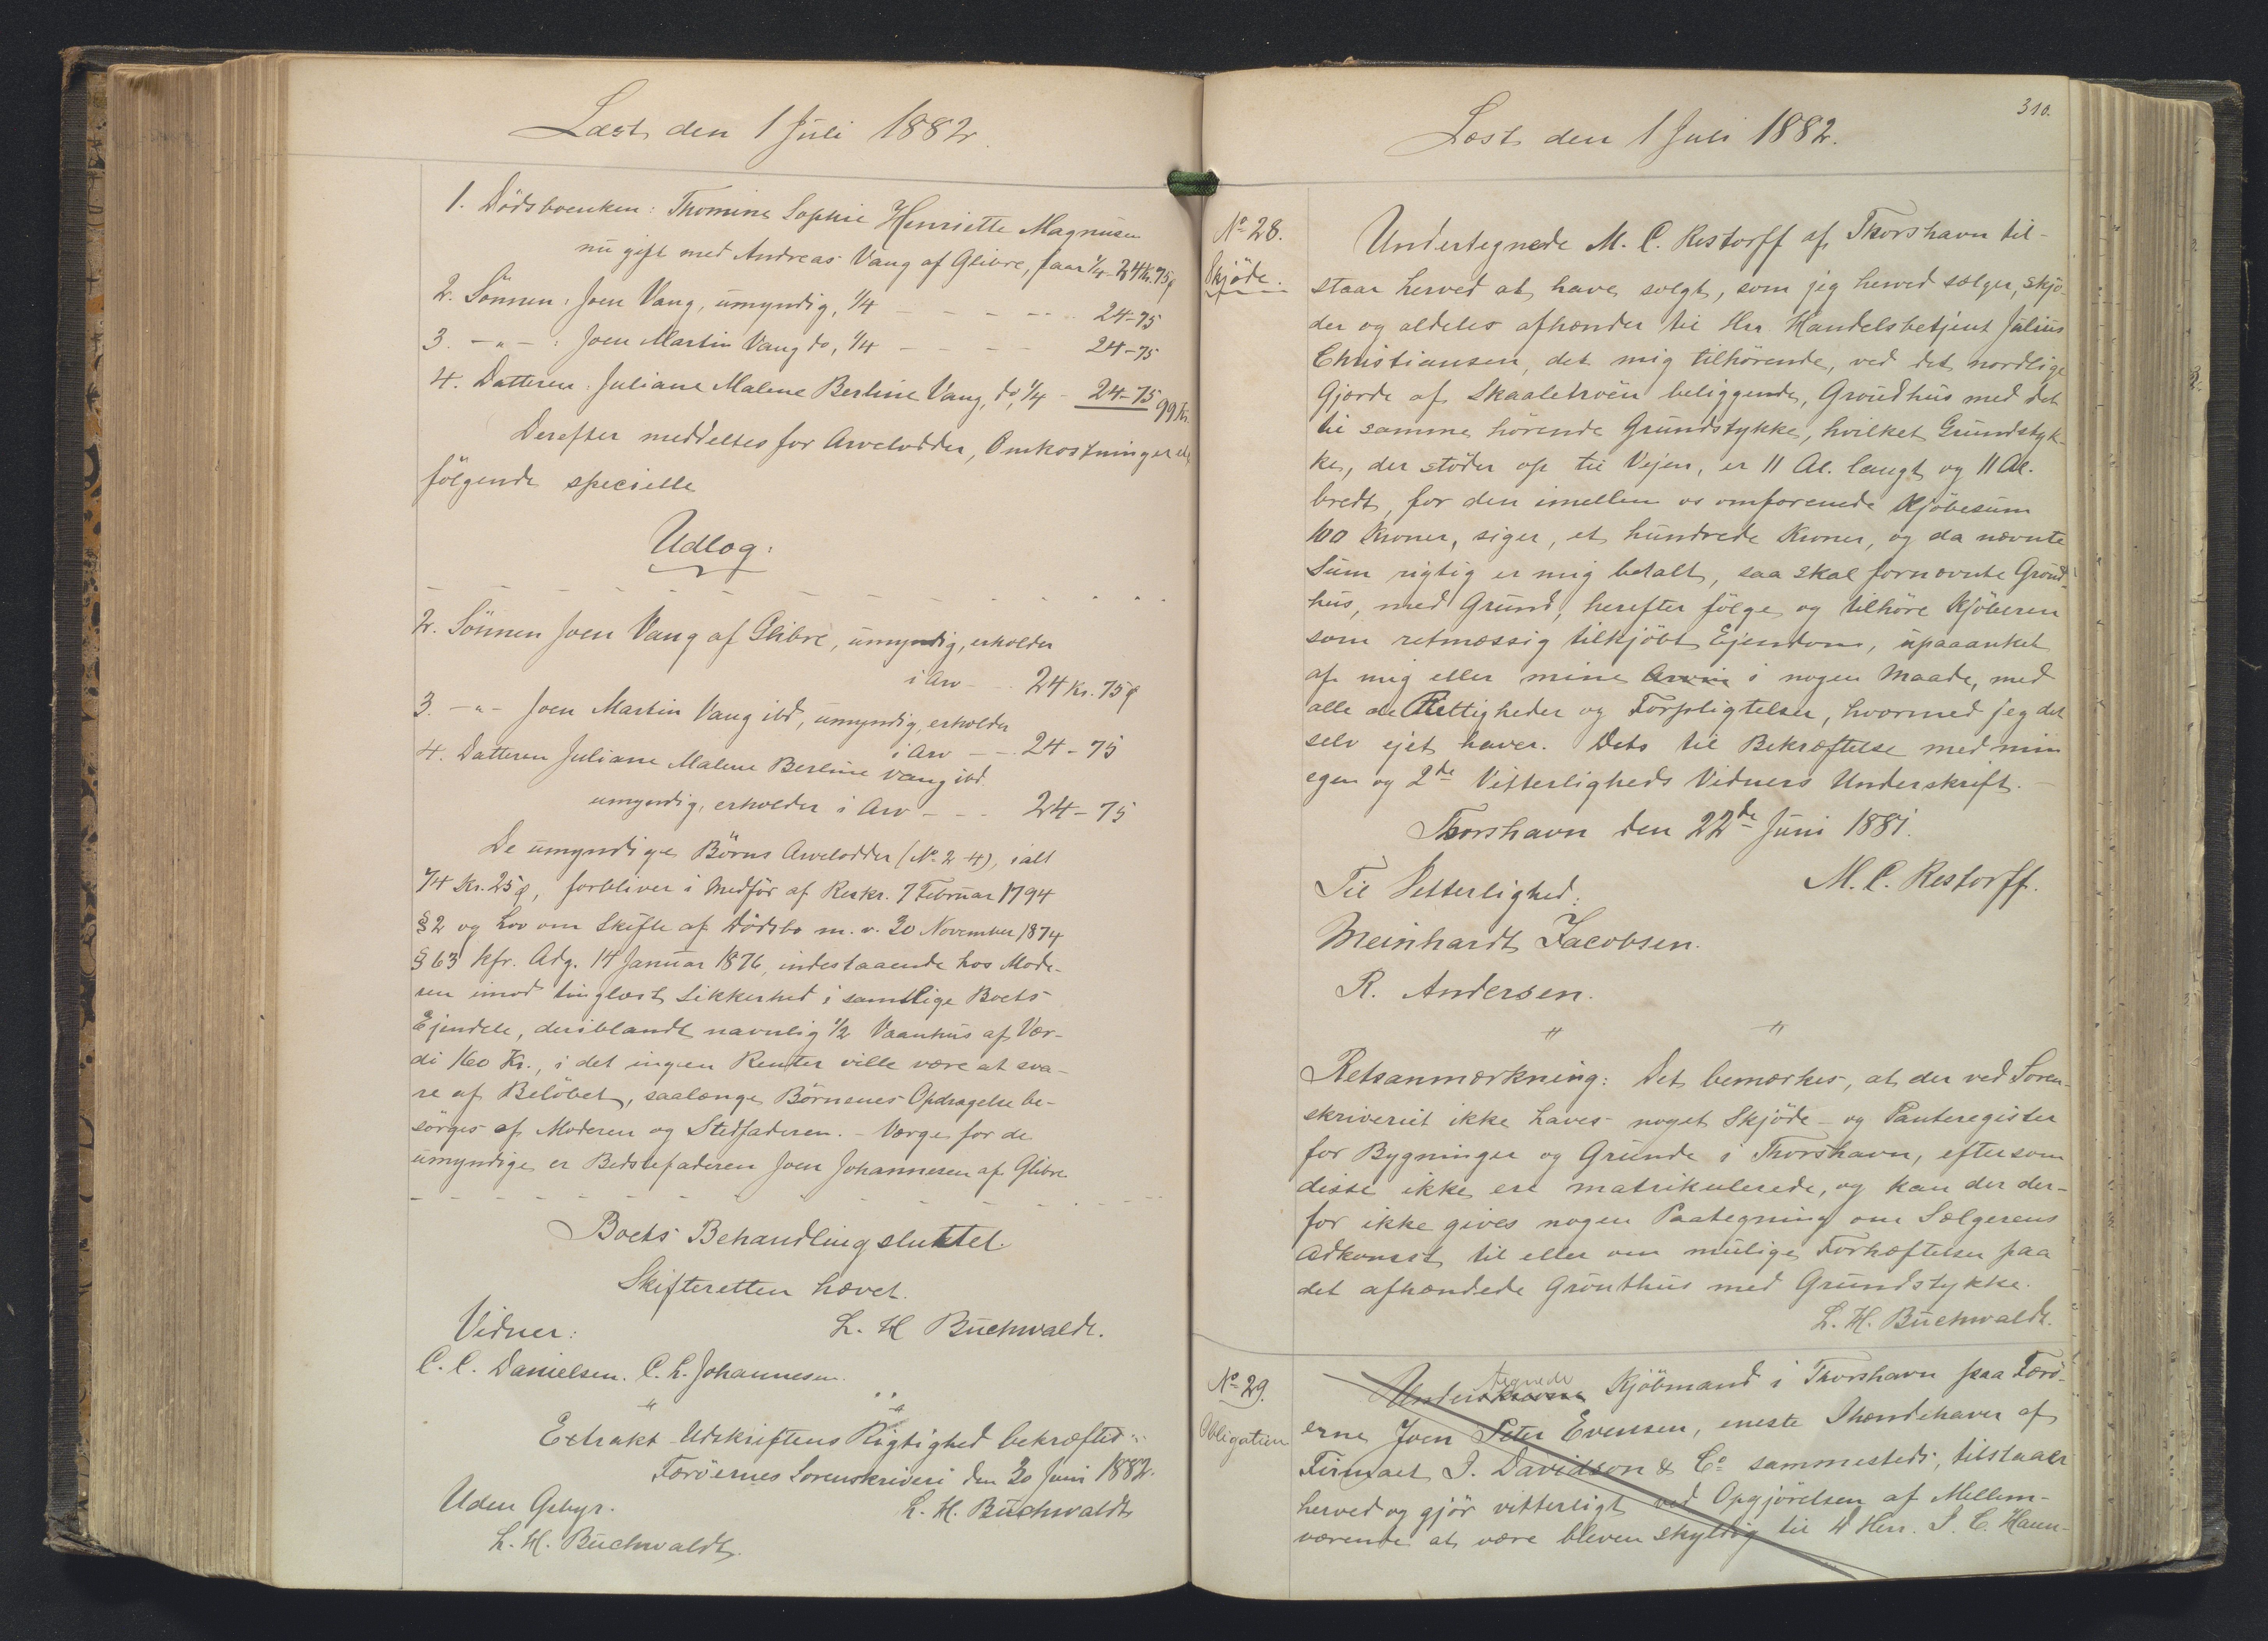 Læst den 1 Juli 1882.
1. Dödsboenken: Thomine Sophie Henriette Magnusen
nu gift med Andreas Vang af Glibre, faar 1/4 - 24 Kr. 75 ø
2. Sönnen: Joen Vang, umyndig, 1/4 - - - - - 24-75
3. -"- : Joen Martin Vang do, 1/4 - - - - 24-75
4. Datteren: Juliane Malene Berline Vang, do, 1/4 - 24-75 99 Kr.
Derefter meddeltes for Arvelodder, Omkostninger
fölgende specielle
Udlæg:
2. Sönnen Joen Vang af Glibre, umyndig, erholder
i Arv - - 24 Kr. 75 ø
3. -"- Joen Martin Vang ibd, umyndig, erholder
i Arv - - 24-75
4. Datteren Juliane Malene Berline Vang ibd.
umyndig, erholder i Arv - - - 24-75
De umyndige Börns Arvelodder (No. 2-4), ialt
74 Kr. 25 ø, forbliver i Medför af Reskr. 7 Februar 1794
§2 og Lov om Skifte af Dödsbo m. v. 30 November 1874
§63 kfr. Adg. 14 Januar 1876, indestaaende hos Mode-
ren imod tinglæst Sikkerhed i samtlige Boets
Ejendele, deriblandt navnlig 1/2 Vaanhus af Vær-
di 160 Kr., i det ingen Renter ville være at sva-
re af Belöbet, saalænge Börnenes Opdragelse be-
sörges af Moderen og Stedfaderen. - Værge for de
umyndige er Bedstefaderen Joen Johannesen af Glibre
Boets Behandling sluttet.
Skifteretten hævet.
L. H. Buchwaldt.
Vidner:
C. C. Danielsen. C. L. Johannesen.
Extrakt-Udskriftens Rigtighed bekræftes
Færöernes Sorenskriveri den 30 Juni 1882.
L. H. Buchwaldt
Uden Gebyr.
L. H. Buchwaldt.
310.
Læst den 1 Juli 1882.
No 28.
Skjöde.
Undertegnede M. C. Restorff af Thorshavn til-
staar herved at have solgt, som jeg herved sælger, skjö-
der og aldeles afhænder til Hrr Handelsbetjent Julius
Christiansen, det mig tilhörende, ved det nordlige
Gjærde af Skaaletröen beliggende, Groudhus med det
til samme hörende Grundstykke, hvilket Grundstyk-
ke, der stöder op til Vejen, er 11 Al. langt og 11 Al.
bredt, for den imellem os omforenede Kjöbesum
100 Kroner, siger, et hundrede Kroner, og da nævnte
Sum rigtig er mig betalt, saa skal fornævnte Groud-
hus, med Grund, herefter fölge og tilhöre Kjöberen
som retmæssig tilkjöbt Ejendom, upaaanket
af mig eller mine Arvin i nogen Maade, med
alle de Rettigheder og Forpligtelser, hvormed jeg det
selv ejet haver. Dets til Bekræftelse med min
egen og 2de Vitterligheds Vidners Underskrift. -
Thorshavn den 22de Juni 1881.
M. C. Restorff.
Til Vitterlighed:
Meinhardt Jacobsen.
R. Andersen.
Retsanmærkning: Det bemærkes, at der ved Soren-
skriveriet ikke haves noget Skjöde- og Panteregister
for Bygninger og Grunde i Thorshavn, eftersom
disse ikke ere matrikulerede, og kan der der-
for ikke gives nogen Paategning om Sælgerens
Adkomst til eller om mulige Forhæftelser paa
det afhændede Grönthus med Grundstykke.
L. H. Buchwaldt.
No 29.
Obligation
Undertegnede Kjöbmand i Thorshavn paa Færö-
erne Joen Peter Evensen, eneste Ihændehaver af
Firmaet J. Davidson & Co sammesteds, tilstaaer
herved og gjör vitterligt ved Opgjörelsen af Mellem-
værende at være bleven skyldig til Hrr. J. C. Haun-